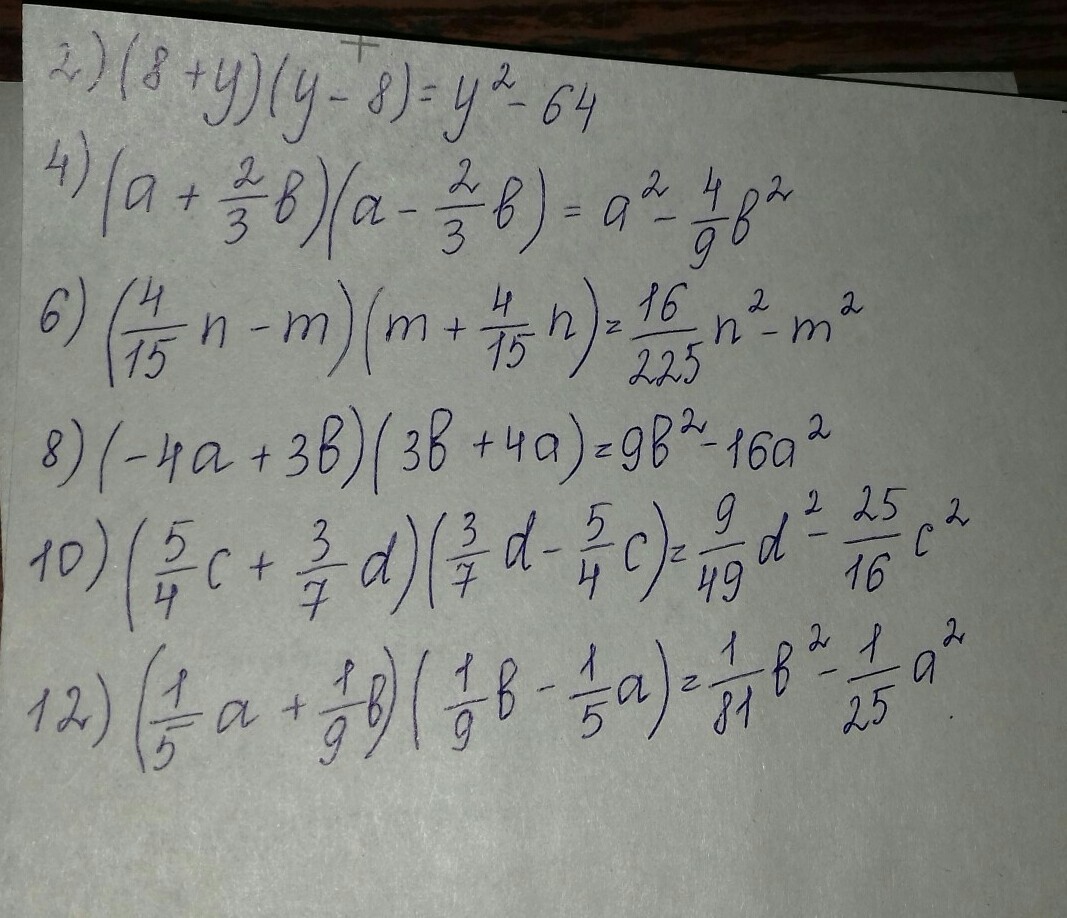 2) (8 + y)(y - 8) = y² - 64
4) (a + 2/3 в)(a - 2/3 в) = a² - 4/9 в²
6) (4/15 n - m)(m + 4/15 n) = 16/225 n² - m²
8) (-4a + 3в)(3в + 4a) = 9в² - 16a²
10) (5/4 c + 3/7 d)(3/7 d - 5/4 c) = 9/49 d² - 25/16 c²
12) (1/5 a + 1/9 в)(1/9 в - 1/5 a) = 1/81 в² - 1/25 a².